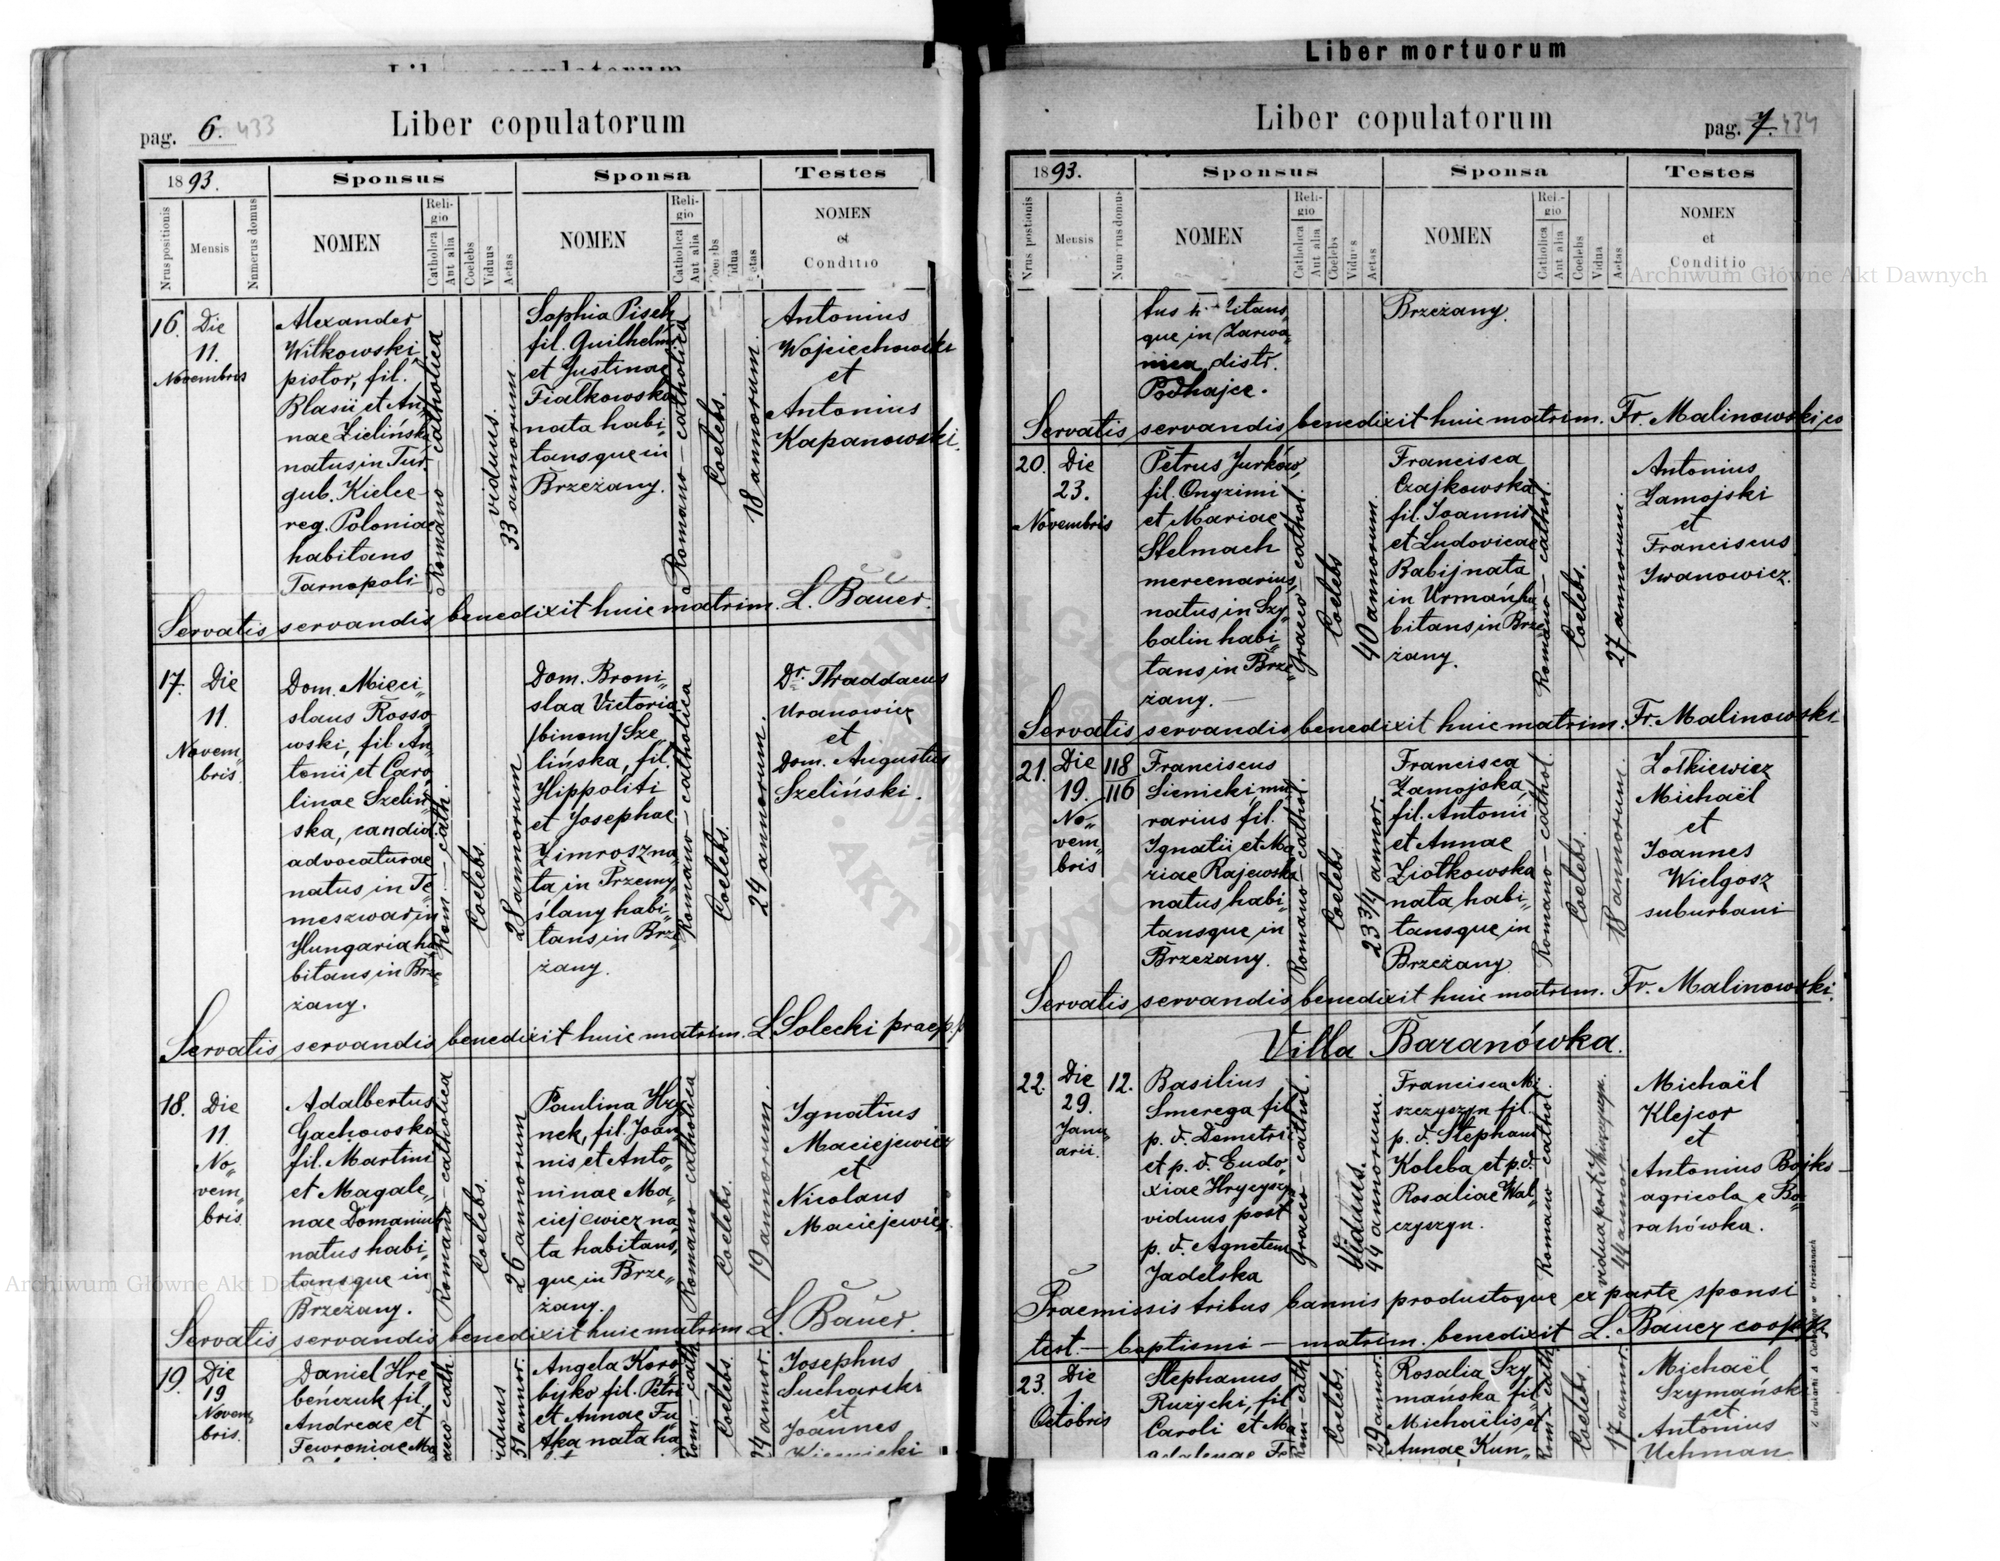 Liber copulatorum
pag. 6. 433
1893.
Sponsus
Sponsa
Testes
Nrus positionis
Mensis
Numerus domus
NOMEN
Religio
Catholica
Aut alia
Coelebs
Viduus
Aetas
NOMEN
Religio
Catholica
Aut alia
Aetas
NOMEN
et
Conditio
16. Die
11.
Novembris
Alexander
Witkowski
pistor, fil.
Blasii et An„
nae Zielińska
natus in Tur.
gub. Kielce
reg. Poloniae
habitans
Tarnopoli
Romano – catholica
viduus.
33 annorum.
Sophia Pisch
fil. Guilhelmi
et Justinae
Fialkowska
nata habi„
tansque in
Brzeżany.
Romano – catholica
Coelebs.
18 annorum.
Antonius
Wojciechowski
et
Antonius
Kapanowski.
Servatis servandis benedixit huic matrim. L. Bauer.
17. Die
11.
Novem„
bris.
Dom. Mieci„
slaus Rosso„
wski, fil. An„
tonii et Caro
linae Szeliń„
ska, candid.
advocaturae
natus in Te„
meszwar in
Hungaria ha
bitans in Brze
żany.
Rom. – cath.
Coelebs.
28 annorum
Dom. Broni„
slaa Victoria
/binom/ Sze„
lińska, fil.
Hippoliti
et Josephae
Zimrosz na„
ta in Przemy„
ślany habi„
tans in Brze
żany.
Romano – catholica
Coelebs.
24 annorum.
Dr. Thaddaeus
Uranowicz
et
Dom. Augustus
Szeliński.
Servatis servandis benedixit huic matrim. L. Solecki praep.
18. Die
11.
No„
vem„
bris.
Adalbertus
Gachowski
fil. Martini
et Magale„
nae Domaniuk
natus habi„
tansque in
Brzeżany.
Romano – catholica
Coelebs.
26 annorum
Paulina Hry
nek, fil. Joan
nis et Anto„
ninae Ma„
ciejewicz na
ta habitans„
que in Brze„
żany.
Romano catholica
Coelebs.
19 annorum.
Ignatius
Maciejewicz
et
Nicolaus
Maciejewicz.
Servatis servandis benedixit huic matrim. L. Bauer.
19. Die
19
Novem„
bris.
Daniel Hre„
beńczuk fil.
Andreae et
Tewroniae
51 annor.
Angela Koro„
bijko fil. Petri
et Annae Fu
tka nata ha
Rom. – cath.
Coelebs.
24 annor.
Josephus
Sucharski
et
Joannes
Liber mortuorum
Liber copulatorum
pag. 7. 434
1893.
Sponsus
Sponsa
Testes
Nrus positionis
Mensis
NOMEN
Religio
Catholica
Aut alia
Coelebs
Viduus
Aetas
NOMEN
Religio
Catholica
Aut alia
Coelebs
Vidua
Aetas
NOMEN
et
Conditio
que in Zarwa„
nica distr.
Podhajce.
Brzeżany.
Servatis servandis benedixit huic matrim. Fr. Malinowski
20. Die
23.
Novembris
Petrus Jurków,
fil. Onyzimi
et Mariae
Stelmach
mercenarius
natus in Szy„
balin habi„
tans in Brze„
żany.
Graeco – cathol.
Coelebs
40 annorum.
Francisca
Czajkowska
fil. Joannis
et Ludovicae
Babij nata
in Urmań ha
bitans in Brze„
żany.
Romano – cathol.
Coelebs.
27 annorum.
Antonius
Zamojski
et
Franciscus
Iwanowicz.
Servatis servandis benedixit huic matrim. Fr. Malinowski
21. Die
19.
No„
vem„
bris
118
116
Franciscus
Sienicki mu„
rarius fil.
Ignatii et Ma
riae Rajewska
natus habi„
tansque in
Brzeżany.
Romano – cathol.
Coelebs.
23 3/4 annor.
Francisca
Zamojska
fil. Antonii
et Annae
Ziołkowska
nata habi„
tansque in
Brzeżany
Romano – cathol.
Coelebs.
18 annorum.
Żołkiewicz
Michaël
et
Joannes
Wielgosz
suburbani
Servatis servandis benedixit huic matrim. Fr. Malinowski.
Villa Baranówka.
22. Die
29.
Janu„
arii.
12.
Basilius
Smerega fil
p. d. Demetri
et p. d. Eudo„
xiae Hrycyszyn
viduus post
p. d. Agnetem
Jadelska
Graeco cathol.
Viduus.
44 annorum.
Francisca Mi„
szczyszyn fil.
p. d. Stephani
Koleba et p. d.
Rosaliae Wal„
czyszyn.
Romano cathol.
44 annor.
Michaël
Klejcor
et
Antonius Bojko
agricolae Bo„
rahówka.
Praemissis tribus bannis productoque ex parte sponsi
test. – baptismi – matrim. benedixit L. Bauer coop.
23. Die
1
Octobris
Stephanus
Rużycki, fil
Caroli et Ma
Rom cath
Coelebs.
29 annor.
Rosalia Szy„
mańska fil
Michaëlis et
Annae Kun„
Rom – cath
Coelebs.
17 annor.
Michaël
Szymański
et
Antonius
Uchman
Archiwum Główne Akt Dawnych
Archiwum Główne Akt Dawnych